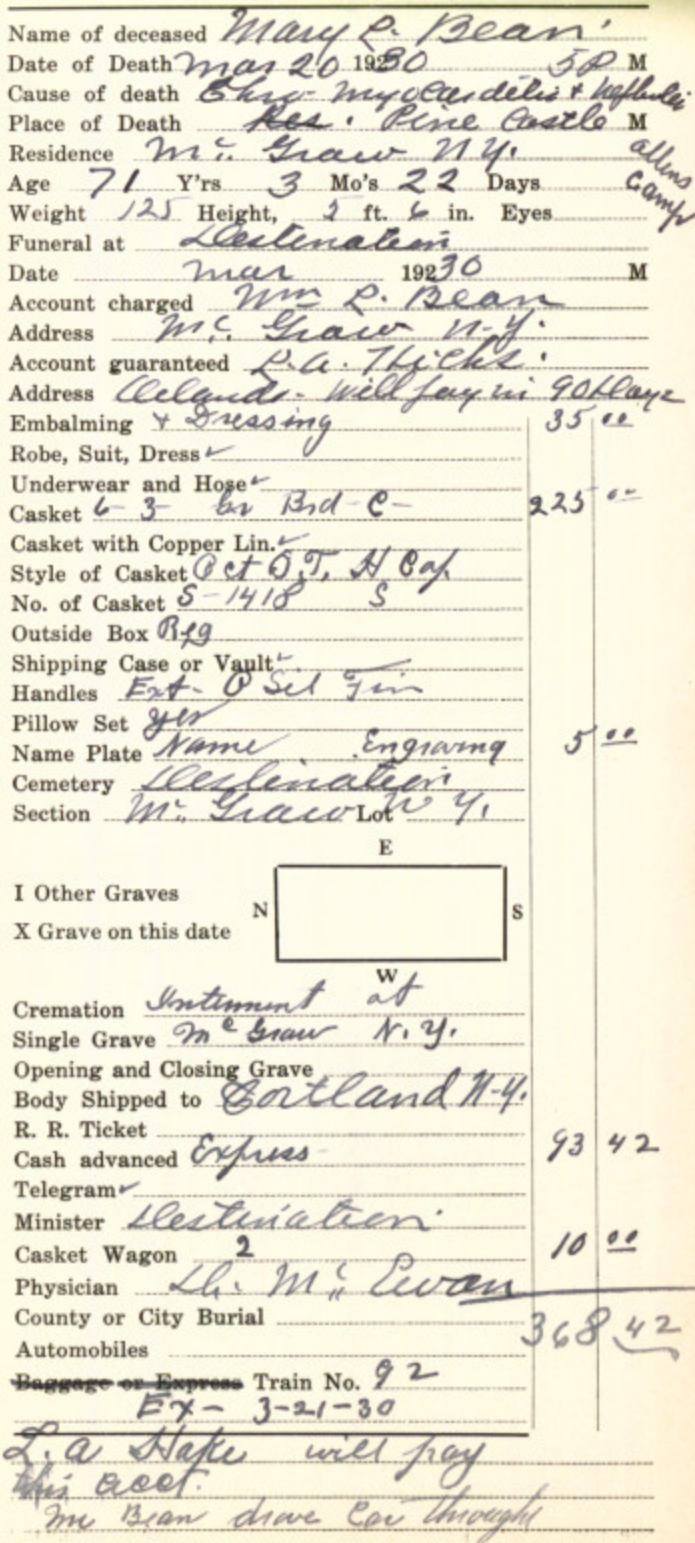 Name of deceased Mary L. Bean
Date of Death Mar 20 19230 5P M
Cause of death Chro Myocarditis + Nephritis
Place of Death Res. Pine Castle M
allens camp
Residence Mc Graw N.Y.
Age 71 Y'rs 3 Mo's 22 Days
Weight 125 Height, 5 ft. 6 in. Eyes
Funeral at Destination
Date Mar 19230 M
Account charged Wm L. Bean
Address Mc Graw N.Y.
Account guaranteed L.A.
Address Orlando - Will pay in 90 Days
Embalming + Dressing 35 00
Robe, Suit, Dress ✓
Underwear and Hose ✓
Casket 6-3 Brd - C - 225 00
Casket with Copper Lin. ✓
Style of Casket Oct O.T. H Cap
No. of Casket S-1418 S
Outside Box
Shipping Case or Vault ✓
Handles Ext- O Sil Fin
Pillow Set yes
Name Plate Name Engraving 5 00
Cemetery Destination
Section Mc Graw Lot N Y.
E
I Other Graves
N S
X Grave on this date
W
Cremation Interment at
Single Grave Mc Graw N.Y.
Opening and Closing Grave
Body Shipped to Cortland N-Y.
R. R. Ticket
Cash advanced Express 93 42
Telegram ✓
Minister Destination
Casket Wagon 2 10 00
Physician Dr. Mc Ewan
County or City Burial 368 42
Automobiles
Baggage or Express Train No. 92
Ex- 3-21-30
L.A will pay
this acct.
Mr Bean drove Car through